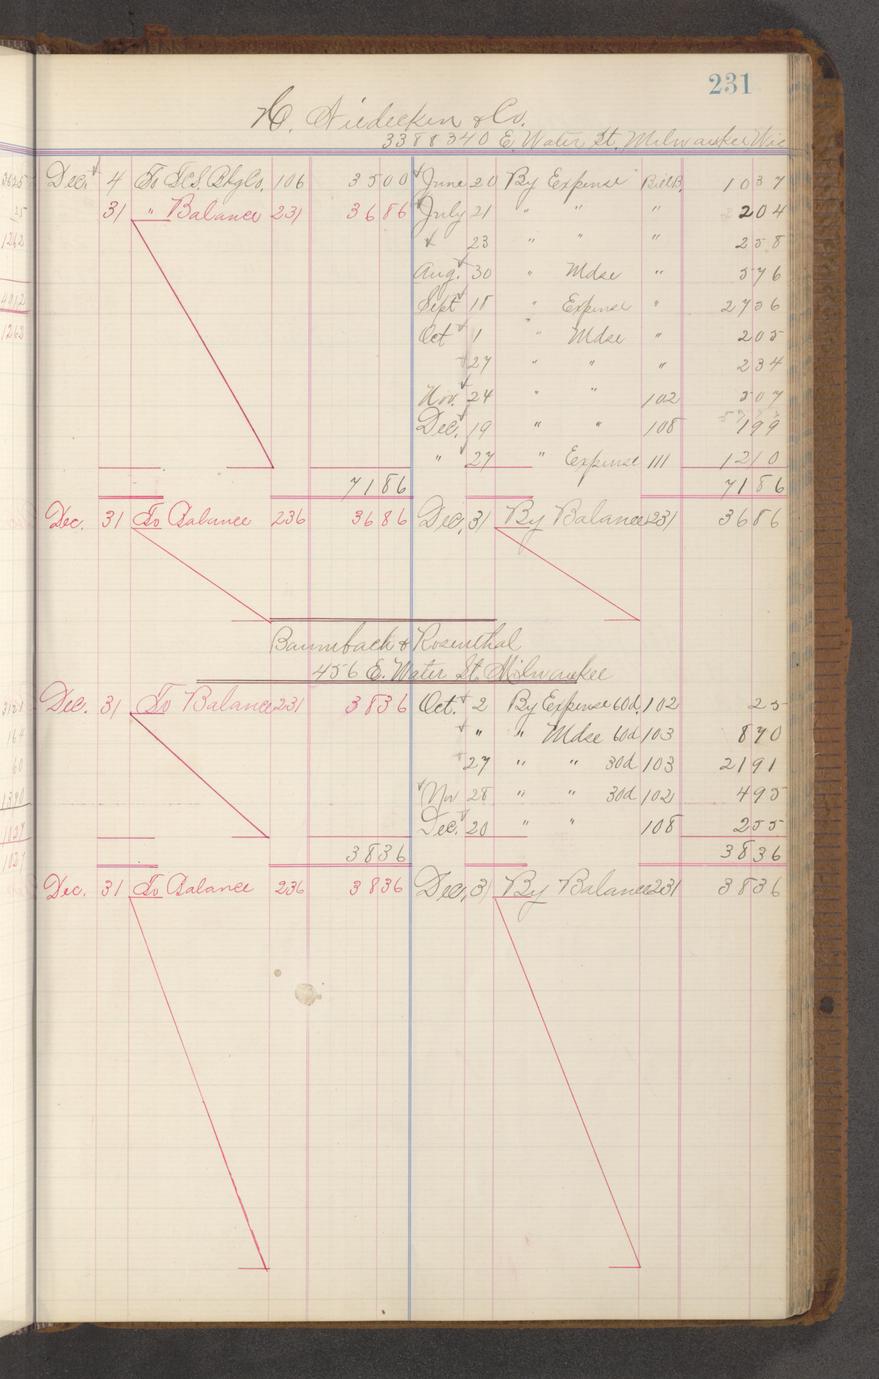 231
H. Niedecken & Co.
338 & 340 E. Water St. Milwaukee Wis
Dec. 4 To T.C.S. Bkg Co. 106 3500 June 20 By Expense Bill B. 1037
31 " Balance 231 3686 July 21 " " " 204
23 " " " 258
Aug. 30 " Mdse " 576
Sept 18 " Expense " 2756
Oct 1 " Mdse " 205
27 " " " 234
Nov. 24 " " 102 507
Dec. 19 " " 108 199
" 27 " Expense 111 1210
7186 7186
Dec. 31 To Balance 236 3686 Dec. 31 By Balance 231 3686
Baumbach & Rosenthal
456 E. Water St. Milwaukee
Dec. 31 To Balance 231 3836 Oct. 2 By Expense 60d. 102 25
" " Mdse 60d 103 870
27 " " 30d 103 2191
Nov 28 " " 30d 102 495
Dec. 20 " " 108 255
3836 3836
Dec. 31 To Balance 236 3836 Dec. 31 By Balance 231 3836